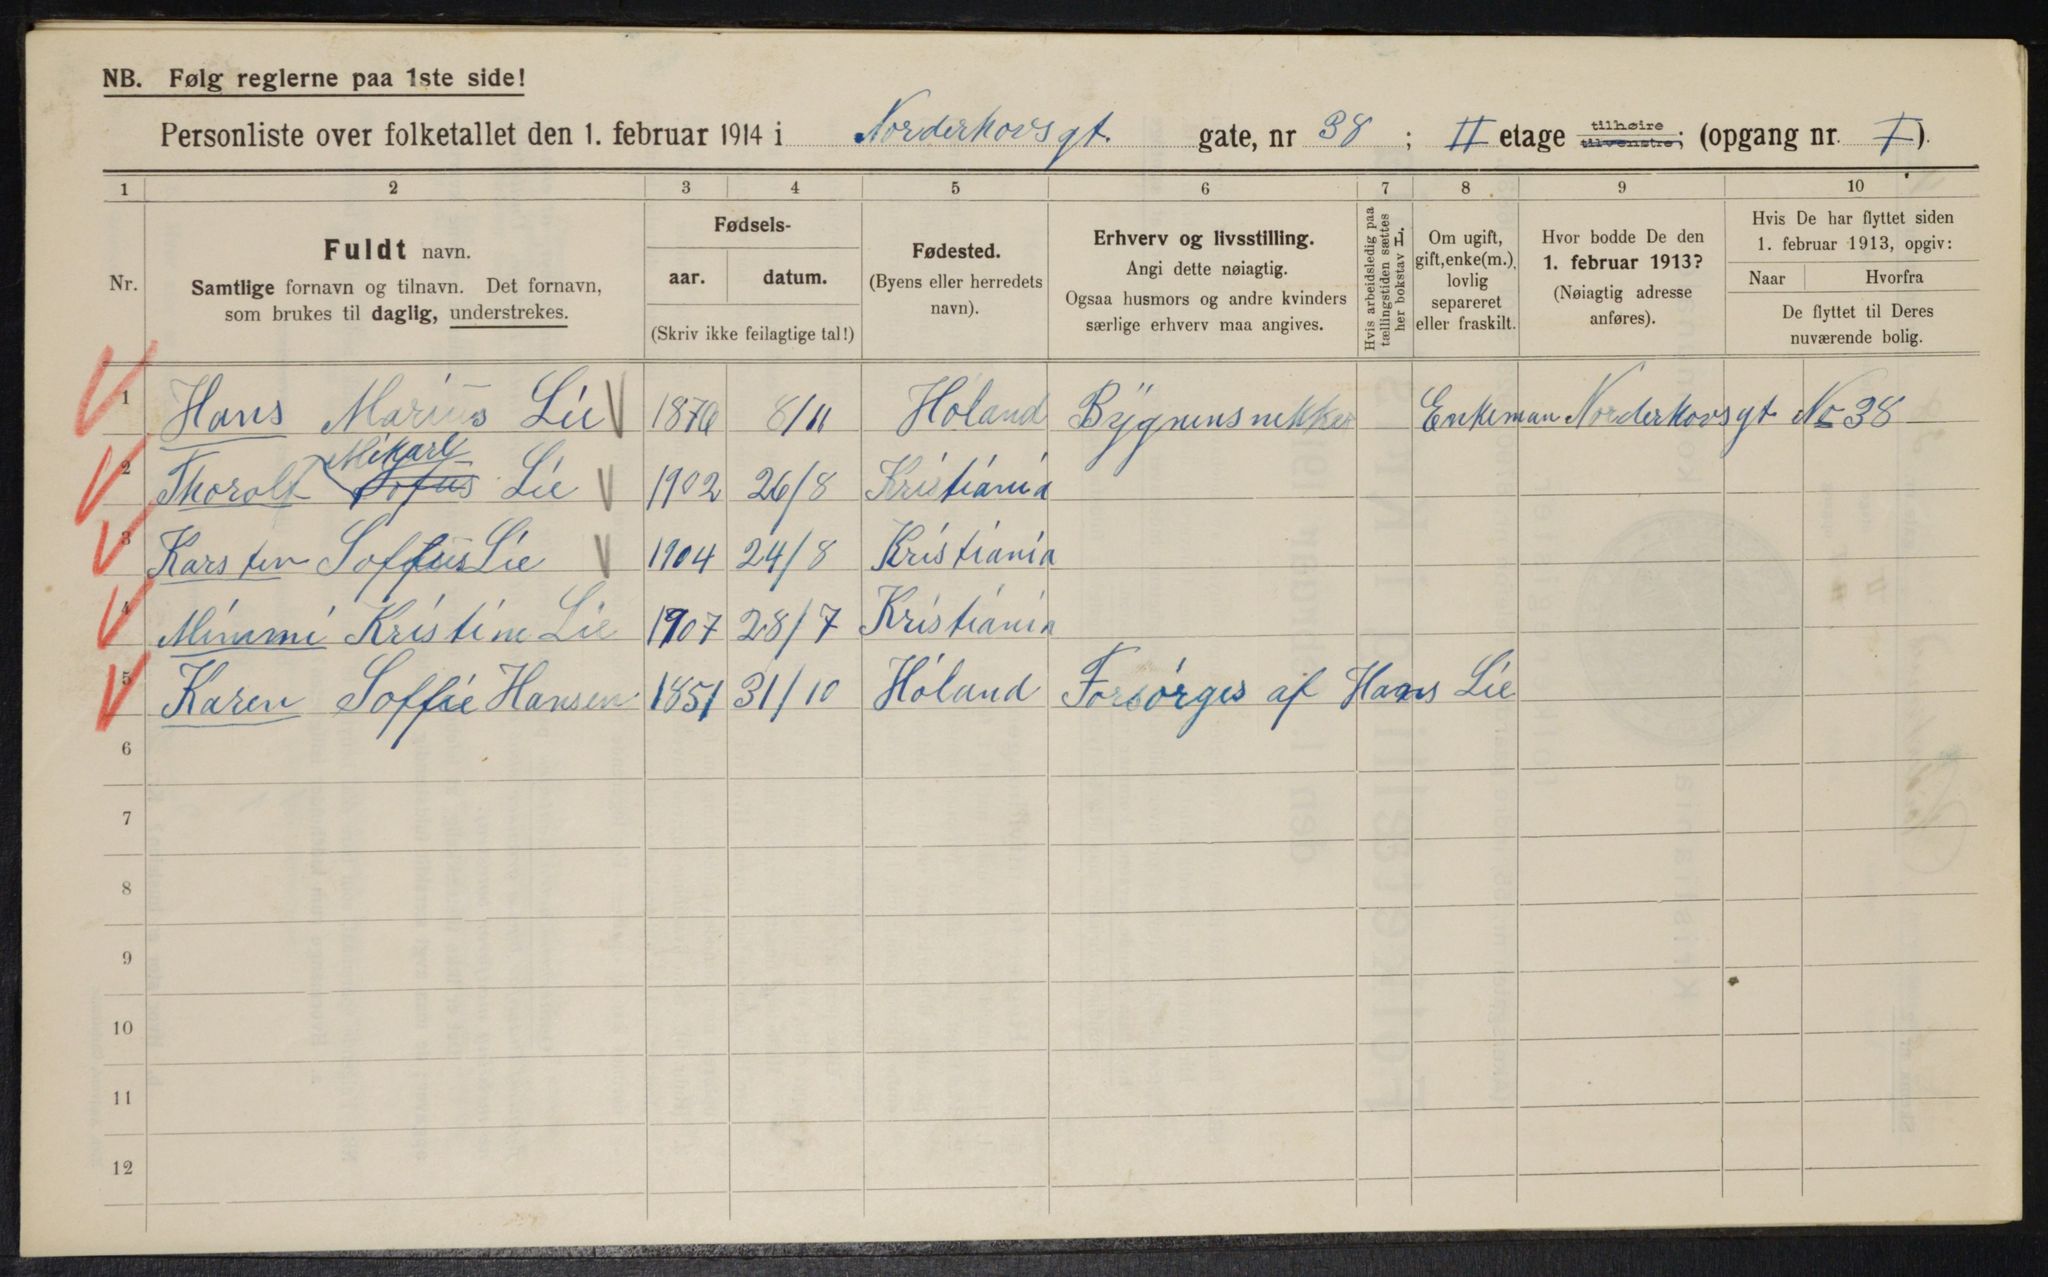 NB. Følg reglerne paa 1ste side!
Personliste over folketallet den 1. februar 1914 i Norderhovsgt. gate, nr 38 ; II etage tilhøire tilvenstre; (opgang nr. I).
1 2 3 4 5 6 7 8 9 10
Nr.
Fuldt navn.
Samtlige fornavn og tilnavn. Det fornavn,
som brukes til daglig, understrekes.
Fødsels-
aar. datum.
(Skriv ikke feilagtige tal!)
Fødested.
(Byens eller herredets
navn).
Erhverv og livsstilling.
Angi dette nøiagtig.
Ogsaa husmors og andre kvinders
særlige erhverv maa angives.
Hvis arbeidsledig paa
tællingstiden sættes
her bokstav L.
Om ugift,
gift, enke(m.),
lovlig
separeret
eller fraskilt.
Hvor bodde De den
1. februar 1913?
(Nøiagtig adresse
anføres).
Hvis De har flyttet siden
1. februar 1913, opgiv:
Naar Hvorfra
De flyttet til Deres
nuværende bolig.
1 Hans Marius Lie 1876 8/11 Høland Bygnensnekker Enkeman Norderhovsgt No 38
Mikael
2 Thorolf Sofus Lie 1902 26/8 Kristiania
3 Karsten Soffus Lie 1904 24/8 Kristiania
4 Mimmi Kristine Lie 1907 28/7 Kristiania
5 Karen Soffie Hansen 1851 31/10 Høland Forsørges af Hans Lie
6
7
8
9
10
11
12